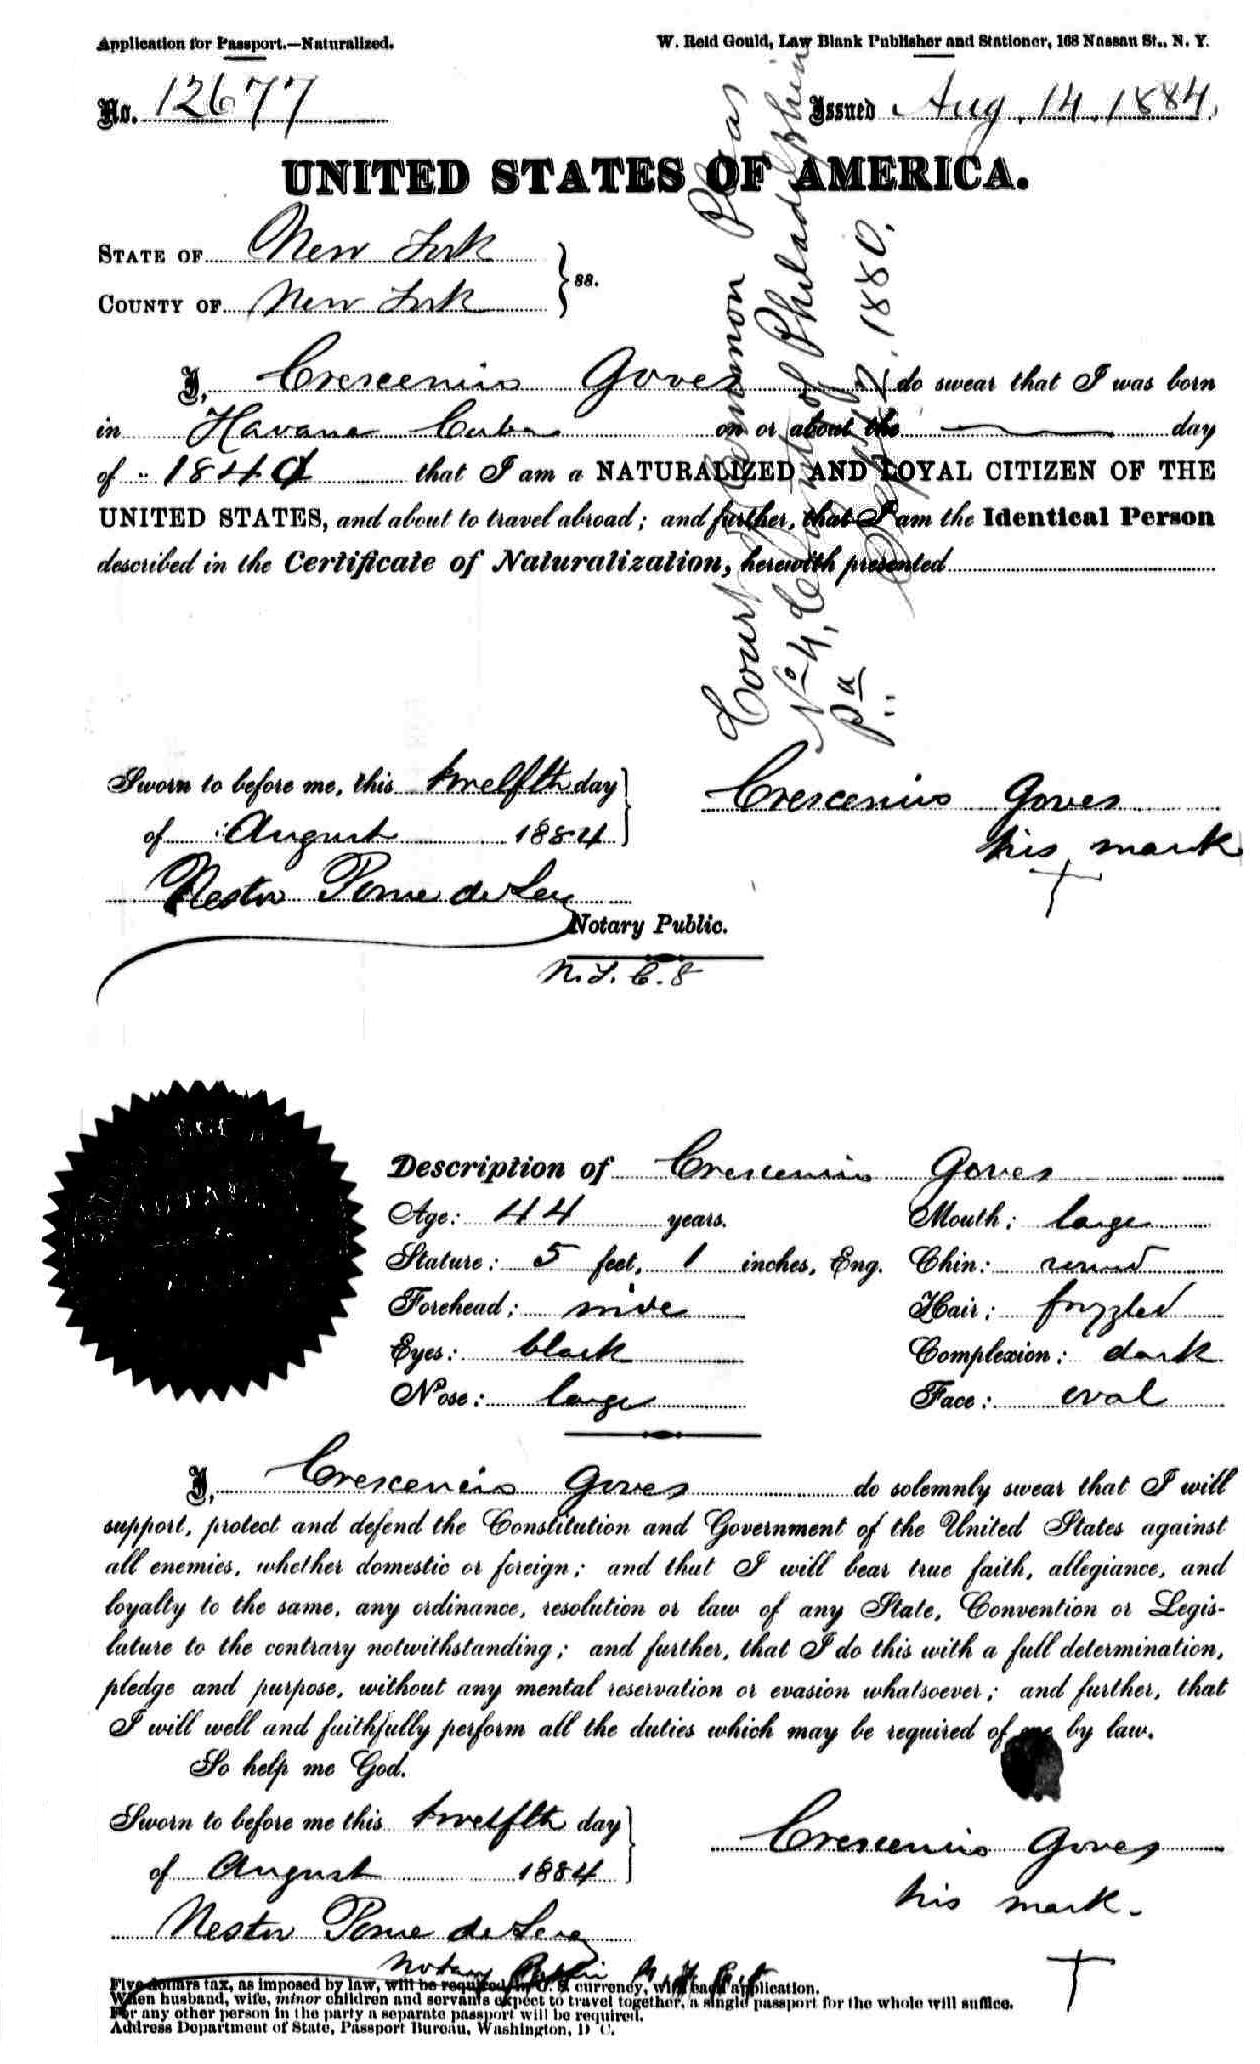 Application for Passport.—Naturalized.
W. Reid Gould, Law Blank Publisher and Stationer, 168 Nassau St., N. Y.
No. 12677
Issued Aug. 14. 1884.
UNITED STATES OF AMERICA.
STATE OF New York
COUNTY OF New York
} ss.
I, Crescenius Goves do swear that I was born
in Havana Cuba on or about the — day
of 1840 that I am a NATURALIZED AND LOYAL CITIZEN OF THE
UNITED STATES, and about to travel abroad; and further, that I am the Identical Person
described in the Certificate of Naturalization, herewith presented
Court Common Pleas
No 4, County of Philadelphia
Pa. Sept 1880.
Sworn to before me, this twelfth day
of August 1884
Nestor Ponce de Leon
Notary Public.
N.Y. C. &
Crescenius Goves
his mark
Description of Crescenius Goves
Age: 44 years.
Stature: 5 feet, 1 inches, Eng.
Forehead: wide
Eyes: black
Nose: large
Mouth: large
Chin: round
Hair: frizzled
Complexion: dark
Face: oval
I, Crescenius Goves do solemnly swear that I will
support, protect and defend the Constitution and Government of the United States against
all enemies, whether domestic or foreign; and that I will bear true faith, allegiance, and
loyalty to the same, any ordinance, resolution or law of any State, Convention or Legis-
lature to the contrary notwithstanding; and further, that I do this with a full determination,
pledge and purpose, without any mental reservation or evasion whatsoever; and further, that
I will well and faithfully perform all the duties which may be required of me by law.
So help me God.
Sworn to before me this twelfth day
of August 1884
Nestor Ponce de Leon
Notary Public
Crescenius Goves
his mark.
Five dollars tax, as imposed by law, will be required in U. S. currency, with each application.
When husband, wife, minor children and servants expect to travel together, a single passport for the whole will suffice.
For any other person in the party a separate passport will be required.
Address Department of State, Passport Bureau, Washington, D. C.